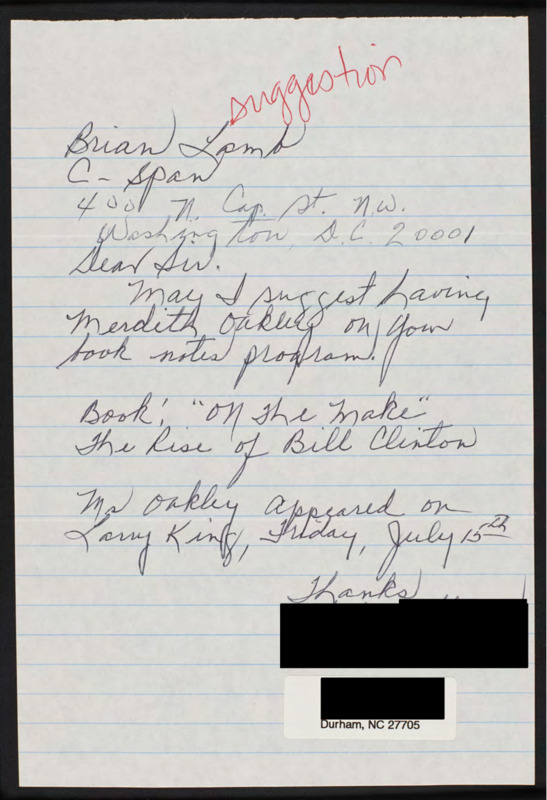 suggestion
Brian Lamb
C-Span
400 N. Cap. St. N.W.
Washington, D.C. 20001
Dear Sir.
May I suggest having
Merdith Oakley on your
book notes program.
Book: "On The Make"
The Rise of Bill Clinton
Ms Oakley appeared on
Larry King, Friday, July 15th
Thanks
Durham, NC 27705